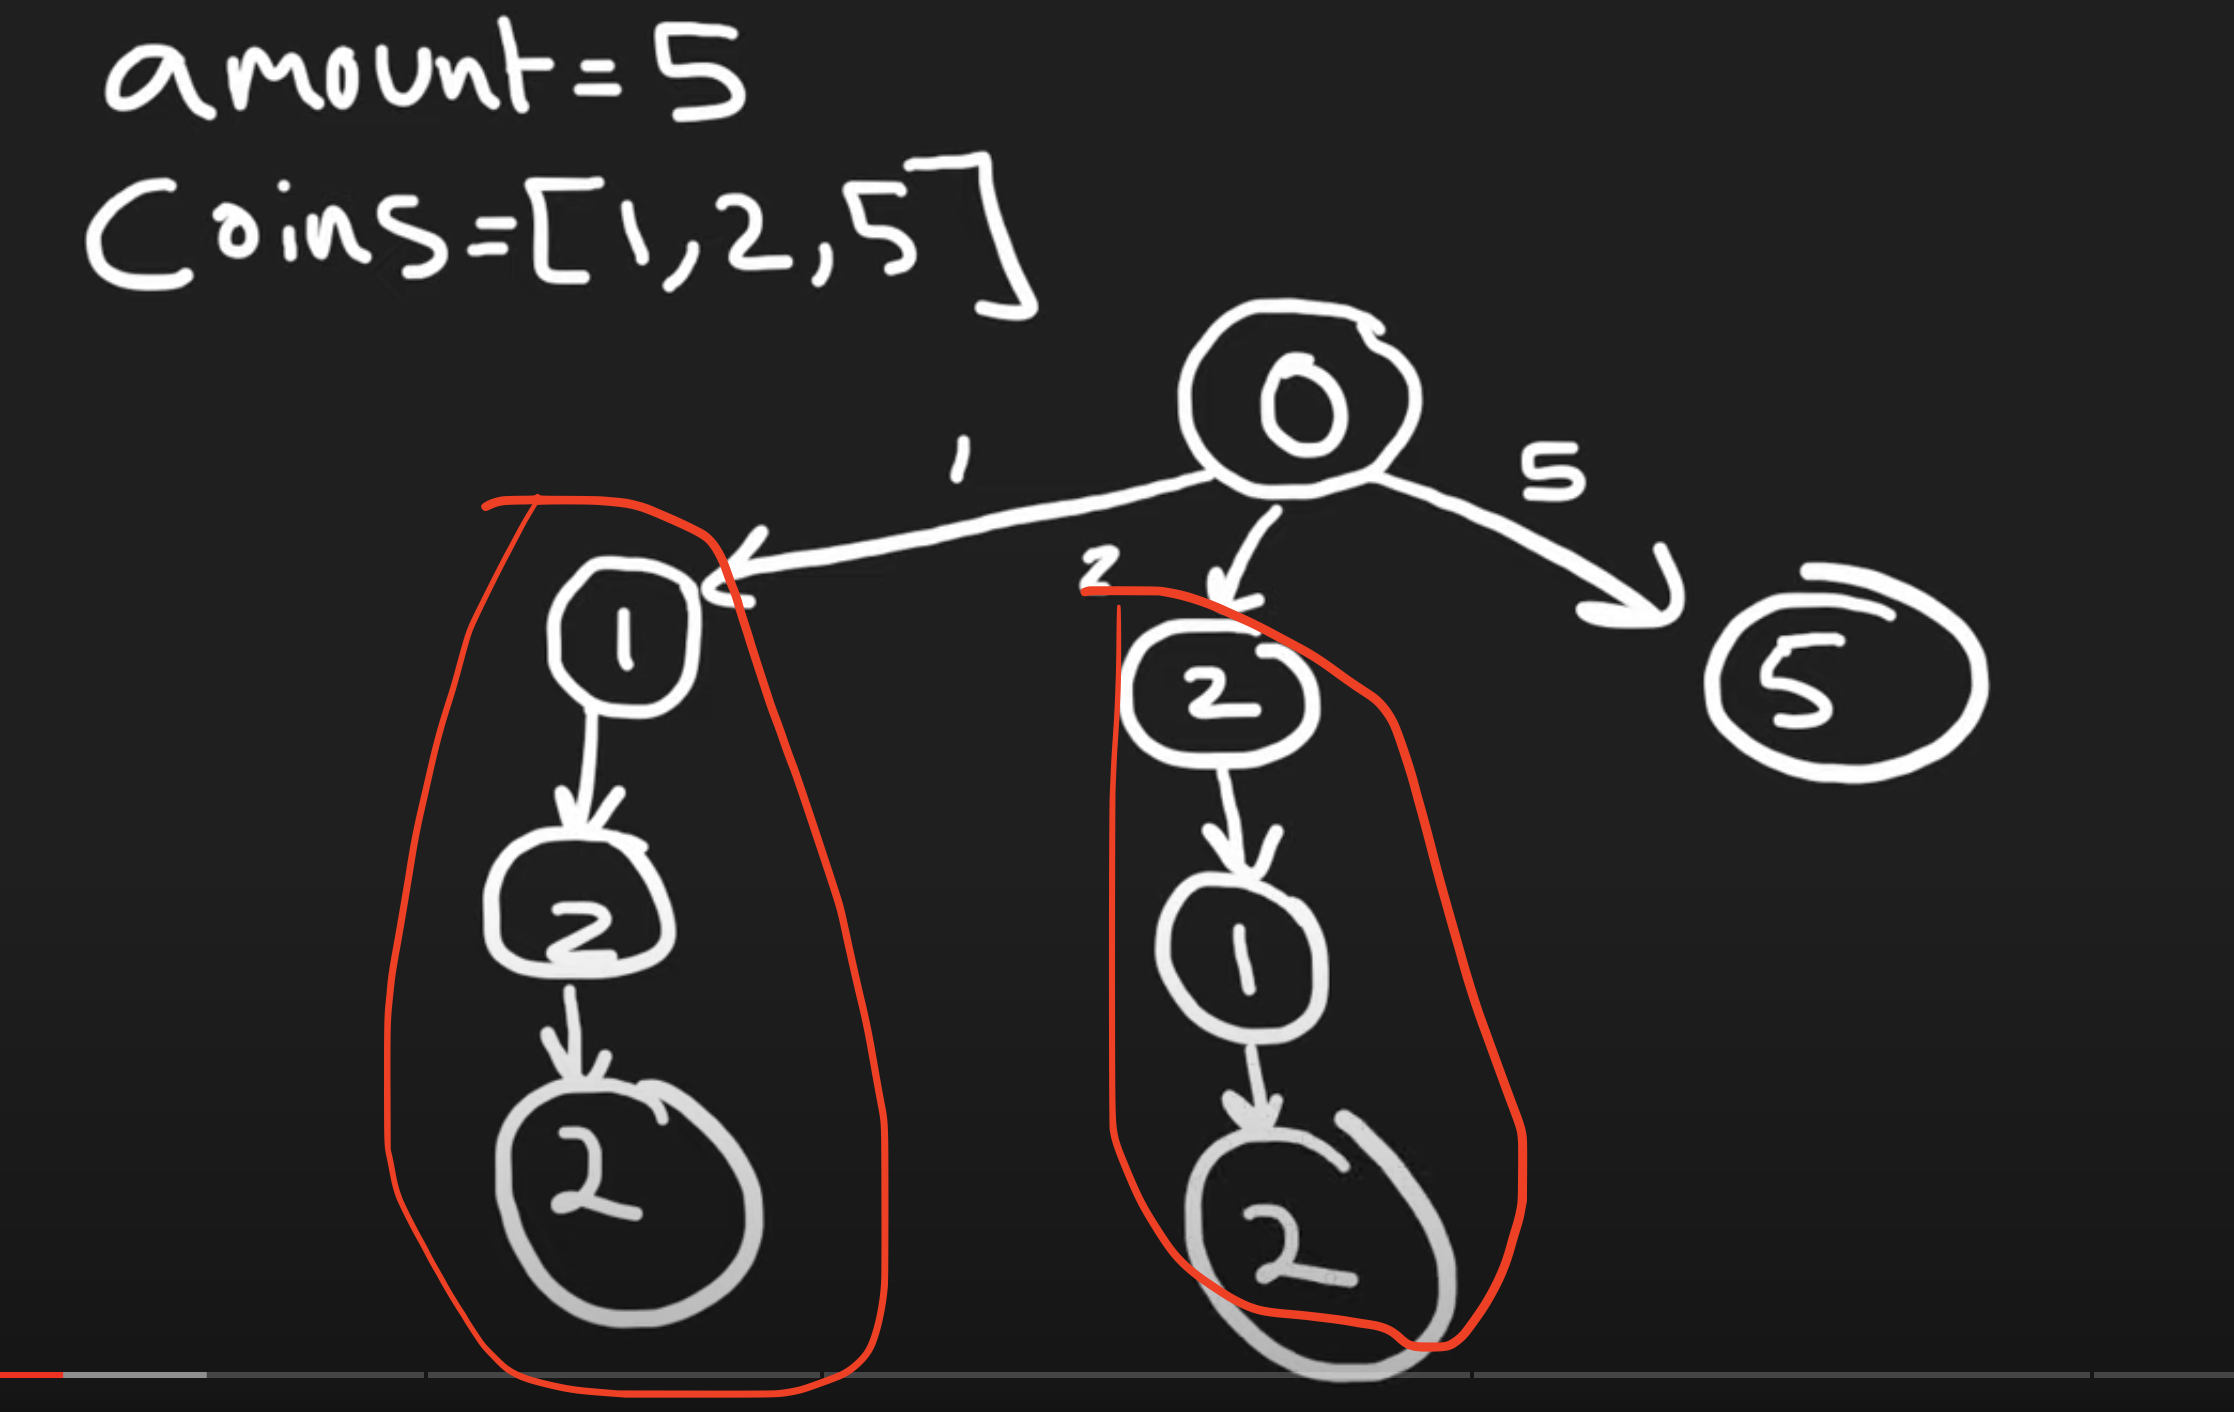 amount=5
Coins=[1,2,5]
0
1
5
2
1
2
5
2
1
2
2